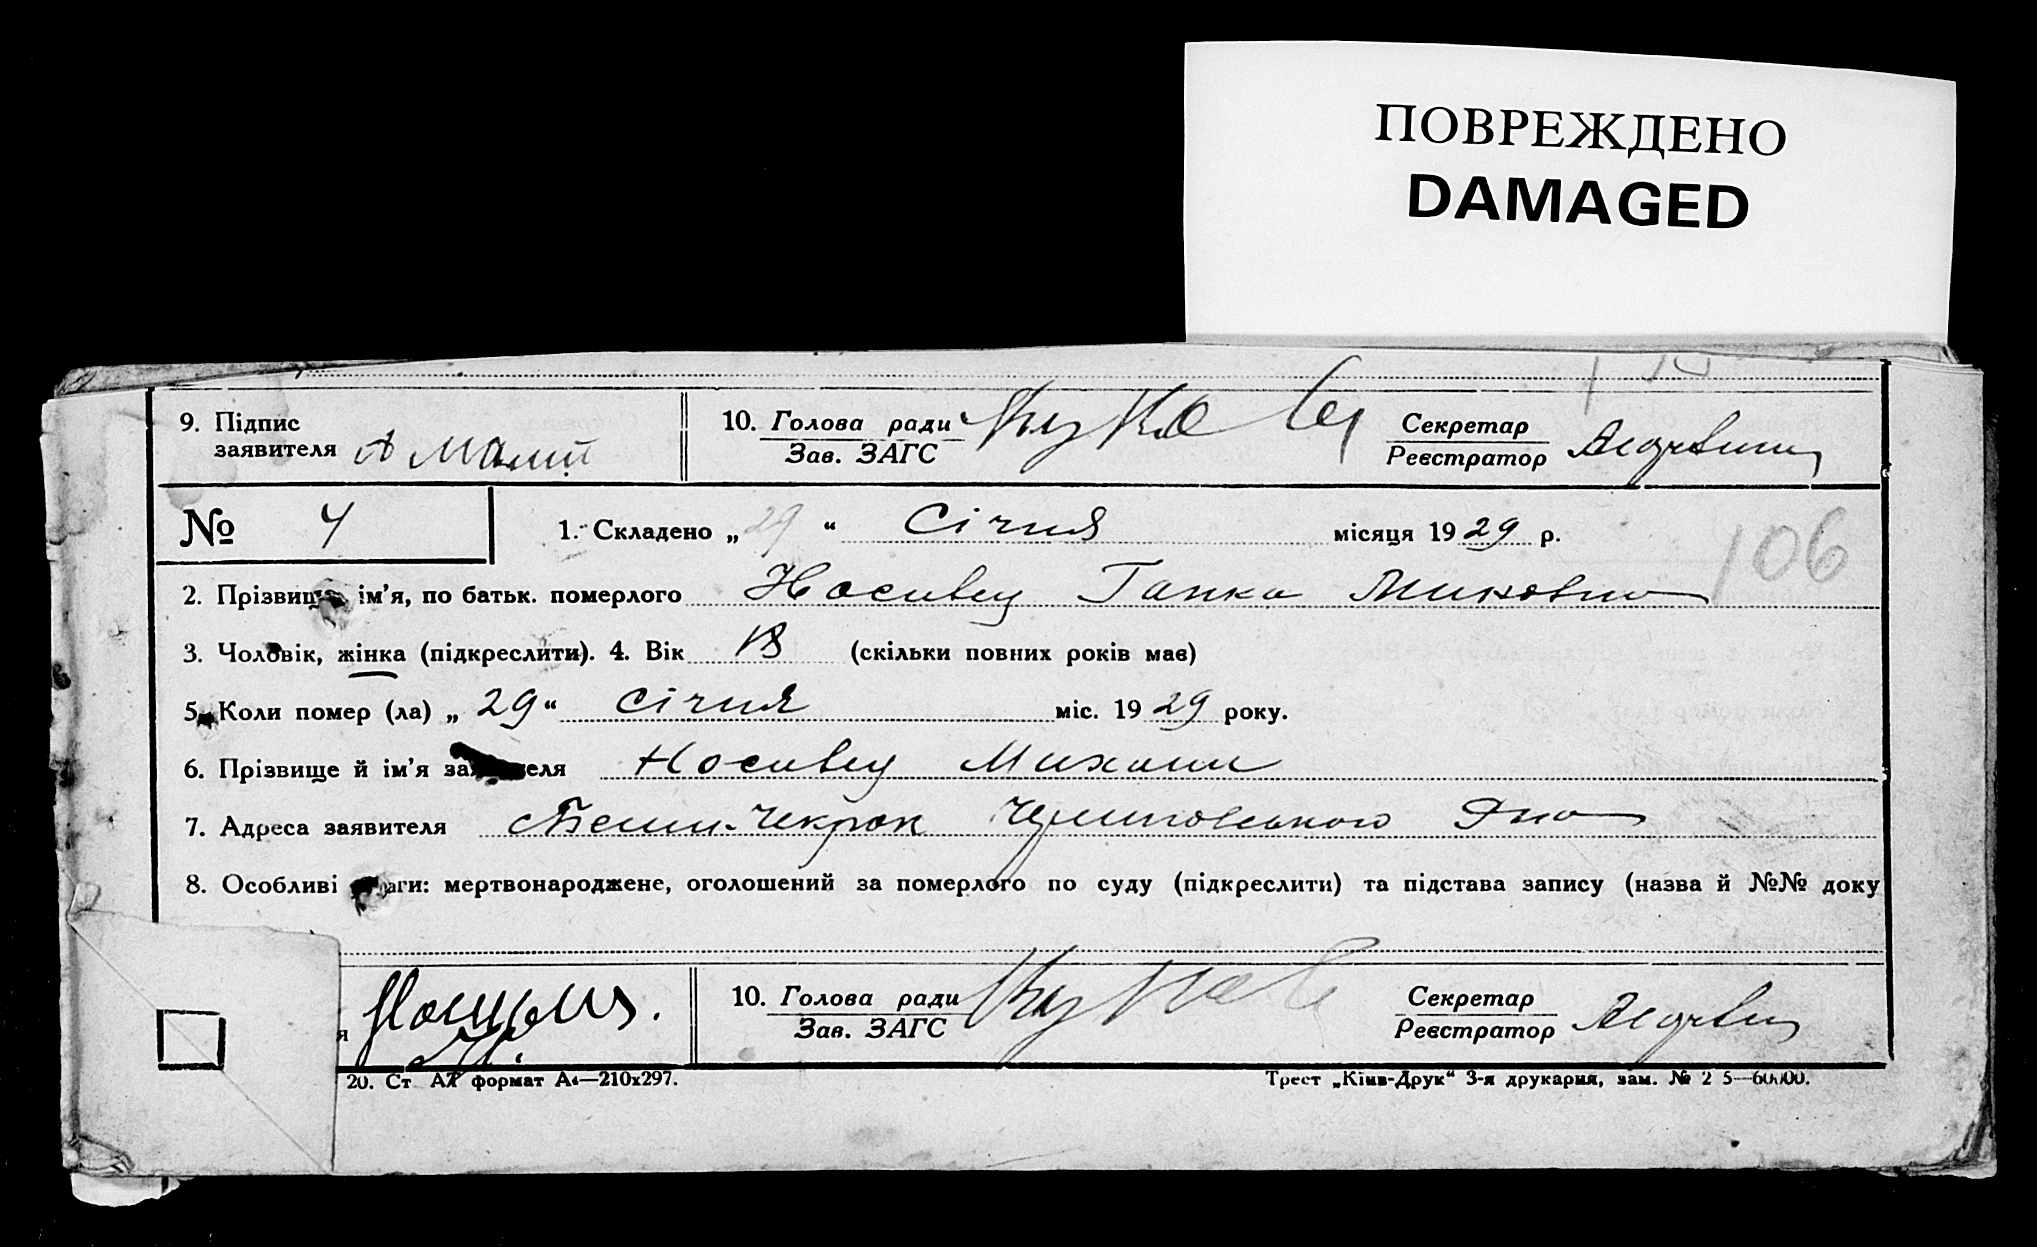 ПОВРЕЖДЕНО
DAMAGED
9. Підпис заявителя А Малий 10. Голова ради Зав. ЗАГС Секретар Реєстратор
№ 4 1. Складено „29“ Січня місяця 1929 р.
106
2. Прізвищ ім'я, по батьк. померлого Носивец Ганка
3. Чоловік, жінка (підкреслити). 4. Вік 18 (скільки повних років має)
5. Коли помер (ла) „29“ Січня міс. 1929 року.
6. Прізвище й ім'я за еля Носивец Михаил
7. Адреса заявителя Бешш-Чекрак
8. Особливі аги: мертвонароджене, оголошений за померлого по суду (підкреслити) та підстава запису (назва й №№ доку
я 10. Голова ради Зав. ЗАГС Секретар Реєстратор
20. Ст АД формат А4—210x297. Трест „Київ-Друк“ 3-я друкарня, зам. № 2 5—60000.